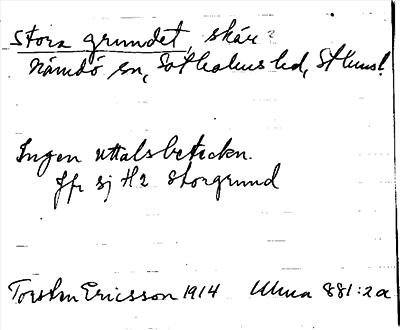 Stora grundet, skär?
Nämdö sn, Sotholms hd, Sthlmsl.
Ingen uttalsbeteckn.
Jfr sj H2 Storgrund
Torsten Ericsson 1914 Ulma 881:2a